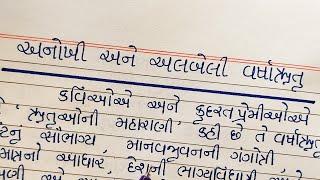 અનોખી અને અલબેલી વર્ષાઋતુ
કવિઓએ અને કુદરતપ્રેમીઓએ
'ઋતુઓની મહારાણી' કહી છે તે વર્ષાઋતુ
સૌભાગ્ય, માનવજીવનની ગંગોત્રી
આધાર, દેશની ભાગ્યવિધાત્રી